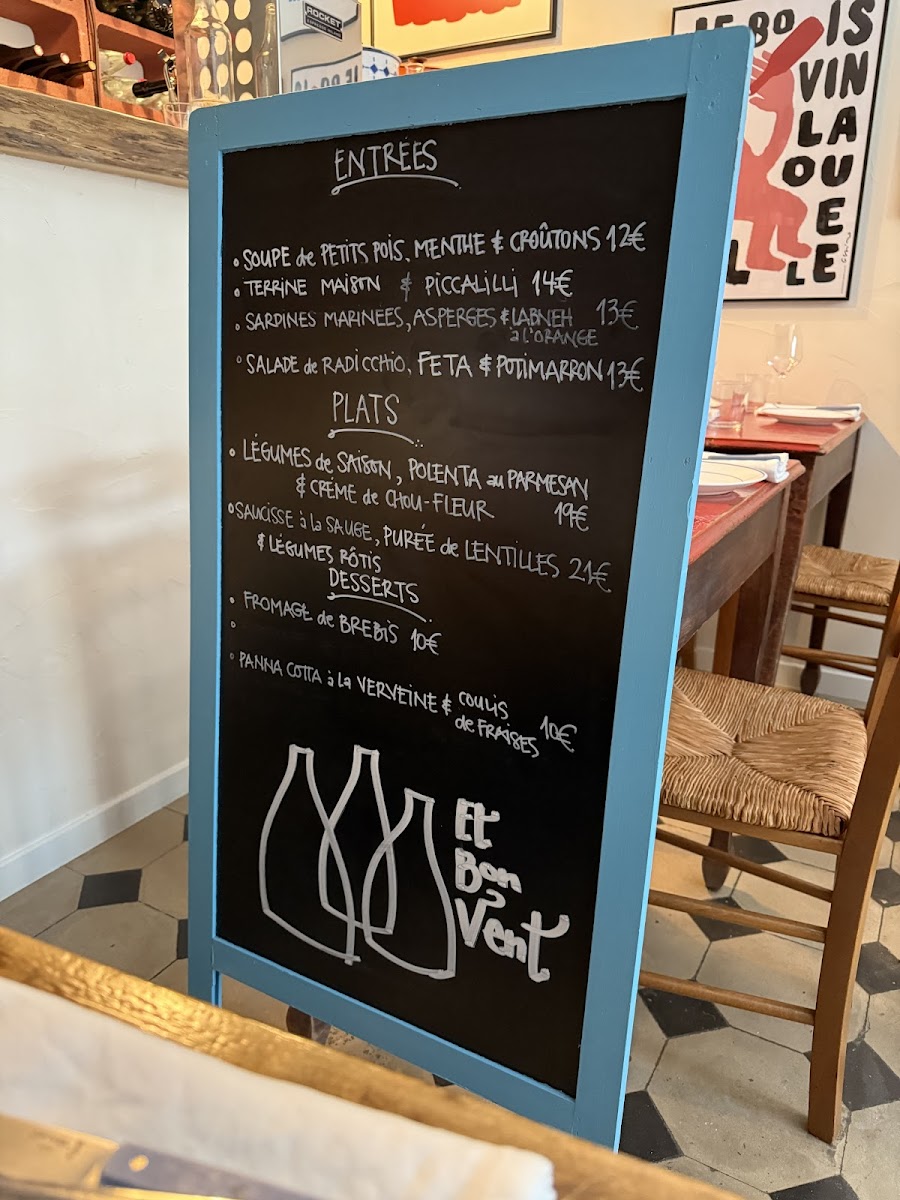 ROCKET
LE BO IS
VIN
LA
LO U
E E
L LE
ENTRÉES
• SOUPE de PETITS POIS, MENTHE & CROÛTONS 12€
• TERRINE MAISON & PICCALILLI 14€
• SARDINES MARINÉES, ASPERGES & LABNEH 13€
à l'ORANGE
• SALADE de RADICCHIO, FETA & POTIMARRON 13€
PLATS
• LÉGUMES de SAISON, POLENTA au PARMESAN
& CRÈME de CHOU-FLEUR 19€
• SAUCISSE à la SAUGE, PURÉE de LENTILLES 21€
& LÉGUMES RÔTIS
DESSERTS
• FROMAGE de BREBIS 10€
•
• PANNA COTTA à la VERVEINE & COULIS
de FRAISES 10€
Et
Bon
Vent